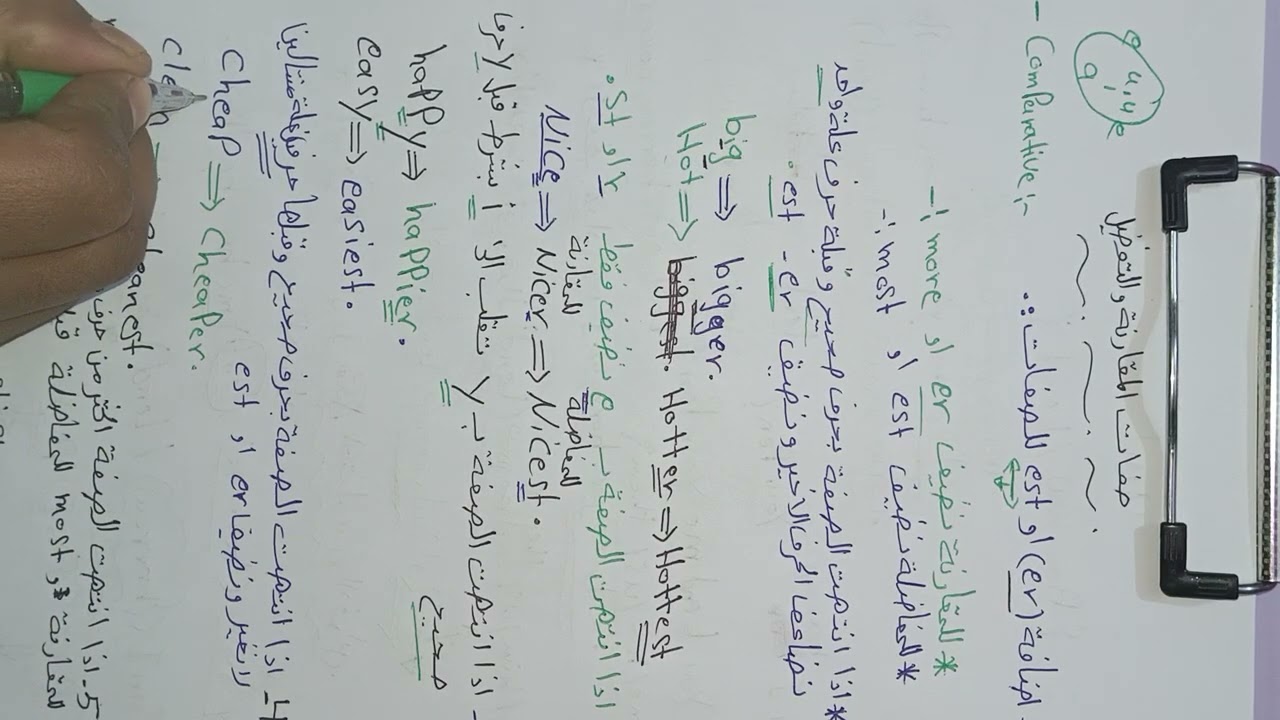 صفات المقارنة والتفضيل
- Comparative :-
- اضافة (er) او est للصفات :.
* للمقارنة نضيف er او more :-
* للمفاضلة نضيف est او most :-
* اذا انتهت الصفة بحرف صحيح وقبلة حرف علة واحد
نضاعف الحرف الاخير و نضيف er - est .
big ⇒ bigger.
Hot ⇒ Hotter ⇒ Hottest
اذا انتهت الصفة ب e نضيف فقط r او st .
للمقارنة للمفاضلة
Nice ⇒ Nicer ⇒ Nicest .
- اذا انتهت الصفة ب y نقلب الى i بشرط قبل y حرف
صحيح
happy ⇒ happier .
easy ⇒ easiest .
4- اذا انتهت الصفة بحرف صحيح وقبلها حرفين علة مثالينا
لا نتغير ونضيف er او est
cheap ⇒ cheaper.
cleanest.
5- اذا انتهت الصفة اكثر من
للمقارنة و most للمفاضلة